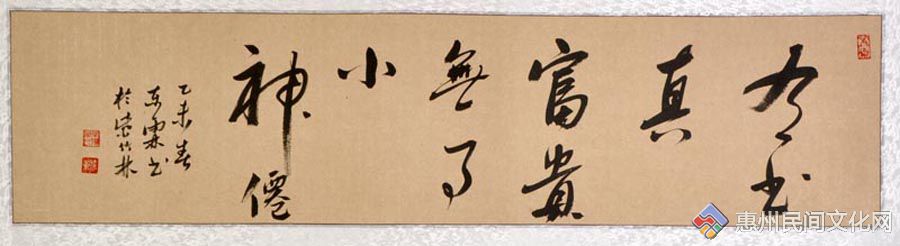 有书
真
富貴
無事
小
神僊
乙未春
东霖书
於竹林
惠州民间文化网